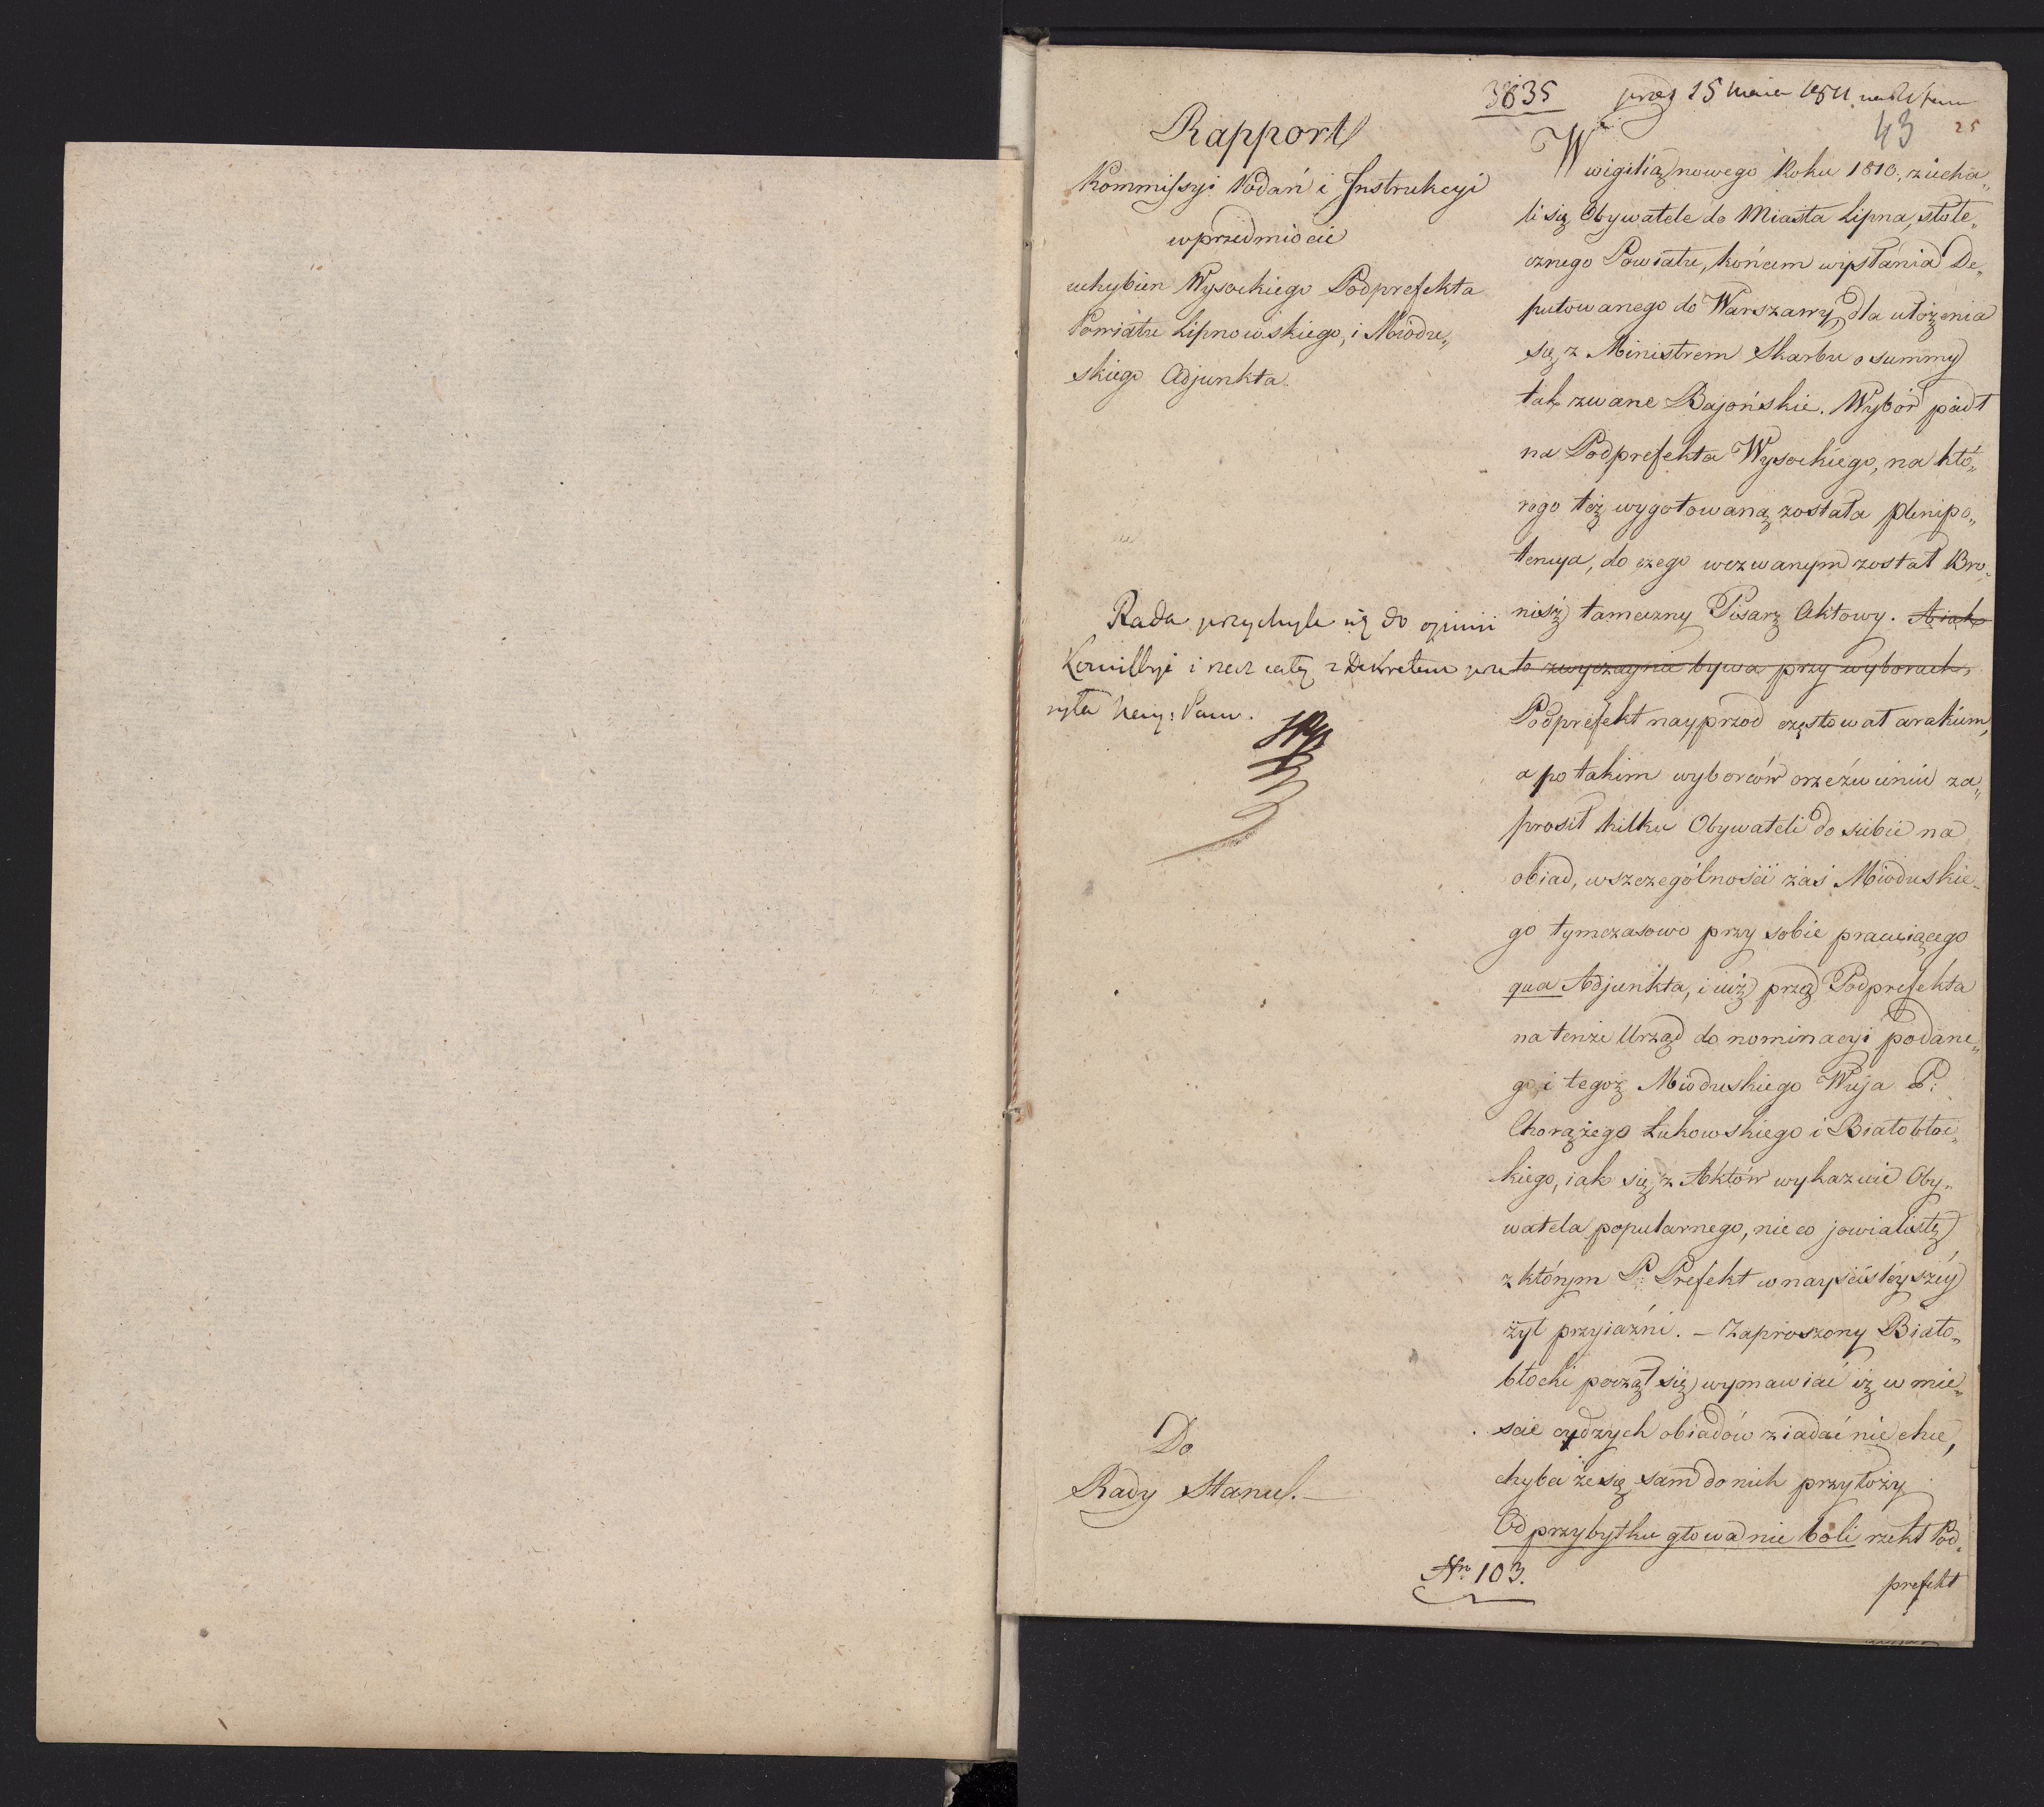 3835 15 maia 1811
43 25
Rapport
Kommissyi Podań i Instrukcyi
w przedmiocie
uchybien Wysockiego Podprefekta
Powiatu Lipnowskiego, i Miodu„
skiego Adjunkta.
Rada przychyla się do opinii
Kommissyi i rzecz całą z Dekretem
Do
Rady Stanu.—
W wigilią nowego Roku 1810. ziecha„
li się Obywatele do Miasta Lipna, stołe„
cznego Powiatu, końcem wysłania De„
putowanego do Warszawy dla ułożenia
się z Ministrem Skarbu o summy
tak zwane Bajońskie. Wybór padł
na Podprefekta Wysockiego, na któ„
rego też wygotowaną została plenipo„
tencya, do czego wezwanym został Bro„
nisz tameczny Pisarz Aktowy. A iak
to zwyczaynie bywa przy wyborach,
Podprefekt nayprzod częstował arakiem,
a po takim wyborców orzeźwieniu za„
prosił kilku Obywateli do siebie na
obiad, w szczególności zaś Mioduskie„
go tymczasowo przy sobie pracuiącego
qua Adjunkta, i iuż przez Podprefekta
na tenże Urząd do nominacyi podane„
go, i tegoż Mioduskiego Wuja P:
Chorążego Łukowskiego i Białobłoc„
kiego, iak się z Aktów wykazuie Oby„
watela popularnego, nieco jowialistę
z którym P: Prefekt w nayściśleyszéy
żył przyiaźni. — Zaproszony Biało„
błocki począł się wymawiać iż w mie„
scie cydzych obiadów ziadać nie chce,
chyba że się sam do nich przyłoży
Od przybytku głowa nie boli rzekł Pod„
prefekt
Nro 103.